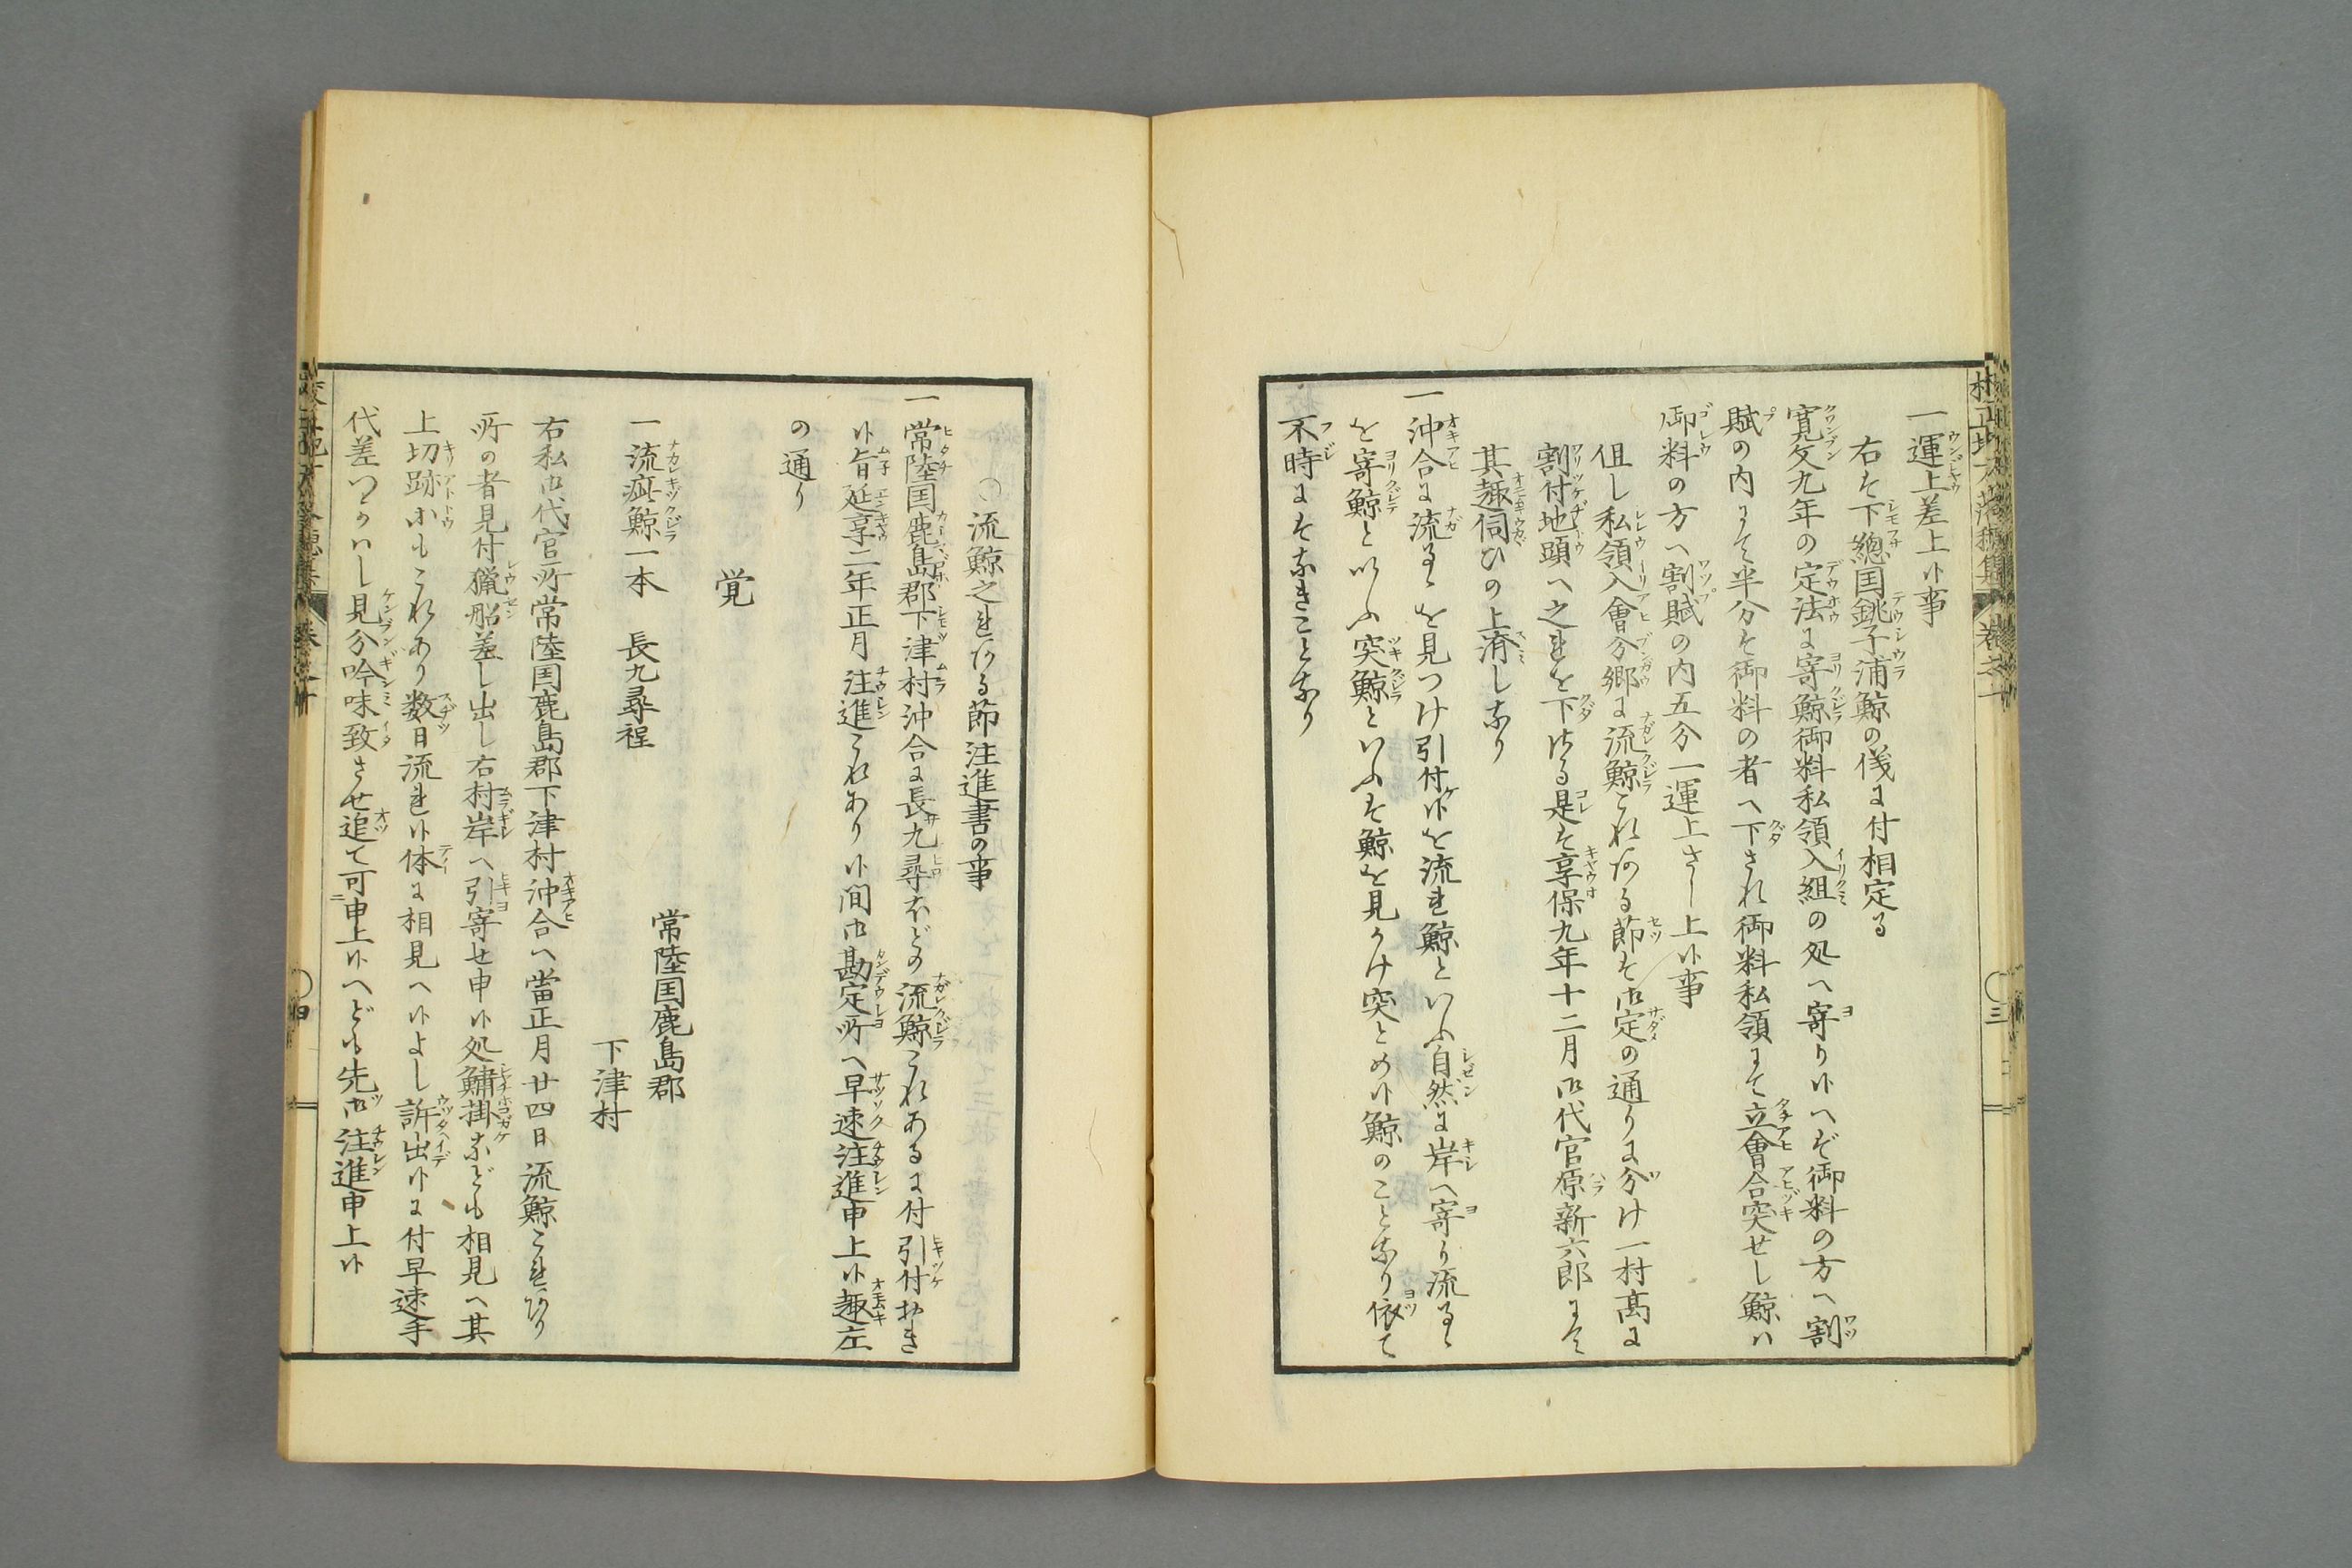 一運上差上候事
右は下總国銚子浦鯨の儀に付相定る
寛文九年の定法に寄鯨御料私領入組の処へ寄り候へぞ御料の方へ割
賦の内にて半分は御料の者へ下され御料私領にて立會合突せし鯨ハ
御料の方へ割賦の内五分一運上さし上候事
但し私領入會分郷に流鯨これある節は御定の通りに分け一村高に
割付地頭へ之れを下さる是は享保九年十二月御代官原新六郎にて
其趣伺ひの上済しなり
一沖合に流るゝを見つけ引付候を流れ鯨といふ自然に岸へ寄り流るゝ
を寄鯨といふ突鯨といふは鯨を見かけ突とめ候鯨のことなり依て
不時にはなきことなり
○流鯨之れある節注進書の事
一常陸国鹿島郡下津村沖合に長九尋ほどの流鯨これあるに付引付おき
候旨延享二年正月注進これあり候間御勘定所へ早速注進申上候趣左
の通り
覚
一流疵鯨一本 長九尋程
常陸国鹿島郡
下津村
右私御代官所常陸国鹿島郡下津村沖合へ當正月廿四日流鯨これあり
所の者見付猟船差し出し右村岸へ引寄せ申候処鯱掛なども相見へ其
上切跡等もこれあり数日流れ候体に相見へ候よし訴出候に付早速手
代差つかハし見分吟味致させ追て可申上候へども先御注進申上候
校正地方落穂集
巻之十
○三
○四